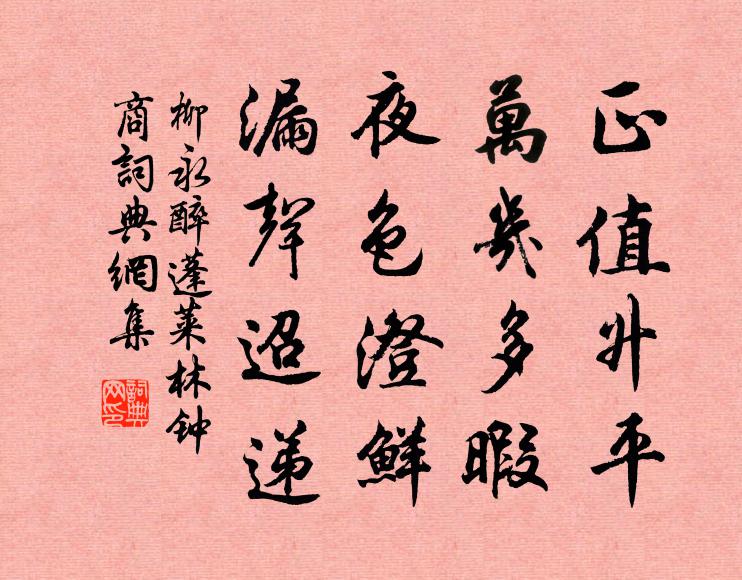 正值升平
萬幾多暇
夜色澄鮮
漏聲迢递
柳永醉蓬莱林钟
商詞典網集
詞典网印